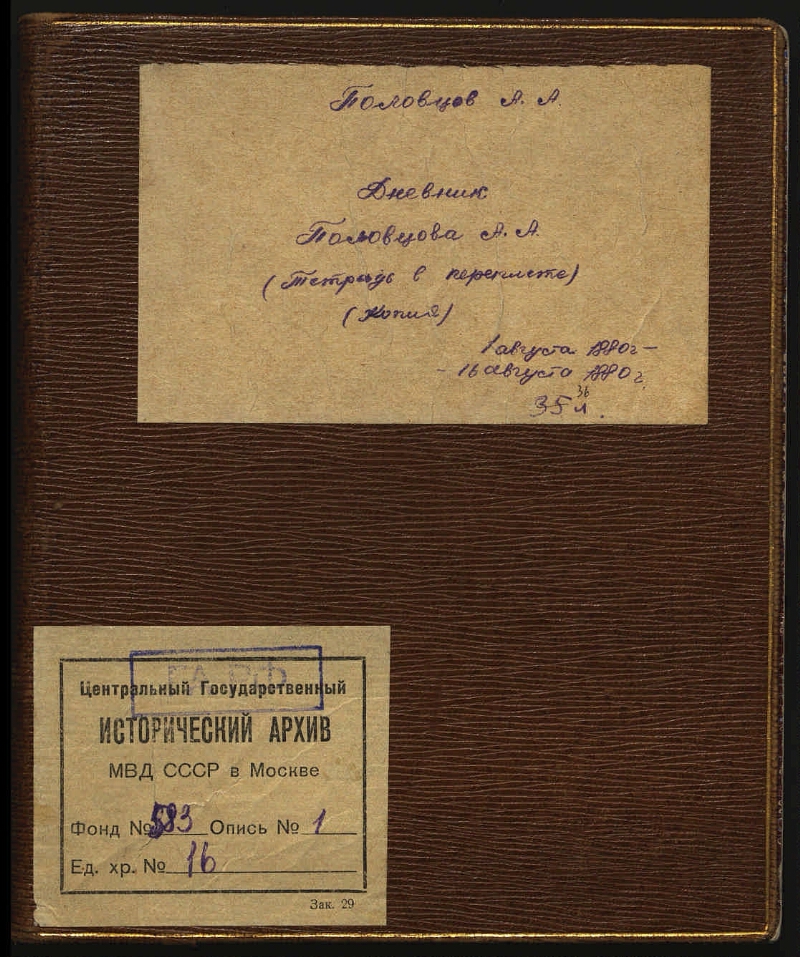 Половцов А. А.
Дневник
Половцова А. А.
(Тетрадь в переплете)
(Копия)
1 августа 1880 г –
- 16 августа 1880 г.
36
35 л.
ГАРФ
Центральный Государственный
ИСТОРИЧЕСКИЙ АРХИВ
МВД СССР в Москве
Фонд № 583 Опись № 1
Ед. хр. № 16
Зак. 29